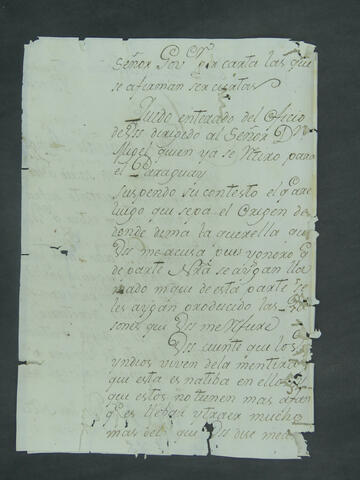 Señor Gov.or por carta las que
se afirman ser ciertas
Quedo enterado del Oficio
de Vs dirigido al Señor Dn
Migel quien ya se Retiro para
el Paraguay
suspendo su contesto el q.e are
luego que sepa el Origen de
donde dima la querella que
Vs me acusa pues ynoro q.e
de parte Nrã se aygan lla
mado ni que de esta parte se
les aygan producido las
sones que Vs me Refiere
Vs cuente que los
yndios viven de la mentira
que esta es natiba en ellos
que estos no tienen mas afan
q.e es llebar y traer mucho
mas del que Vs dise